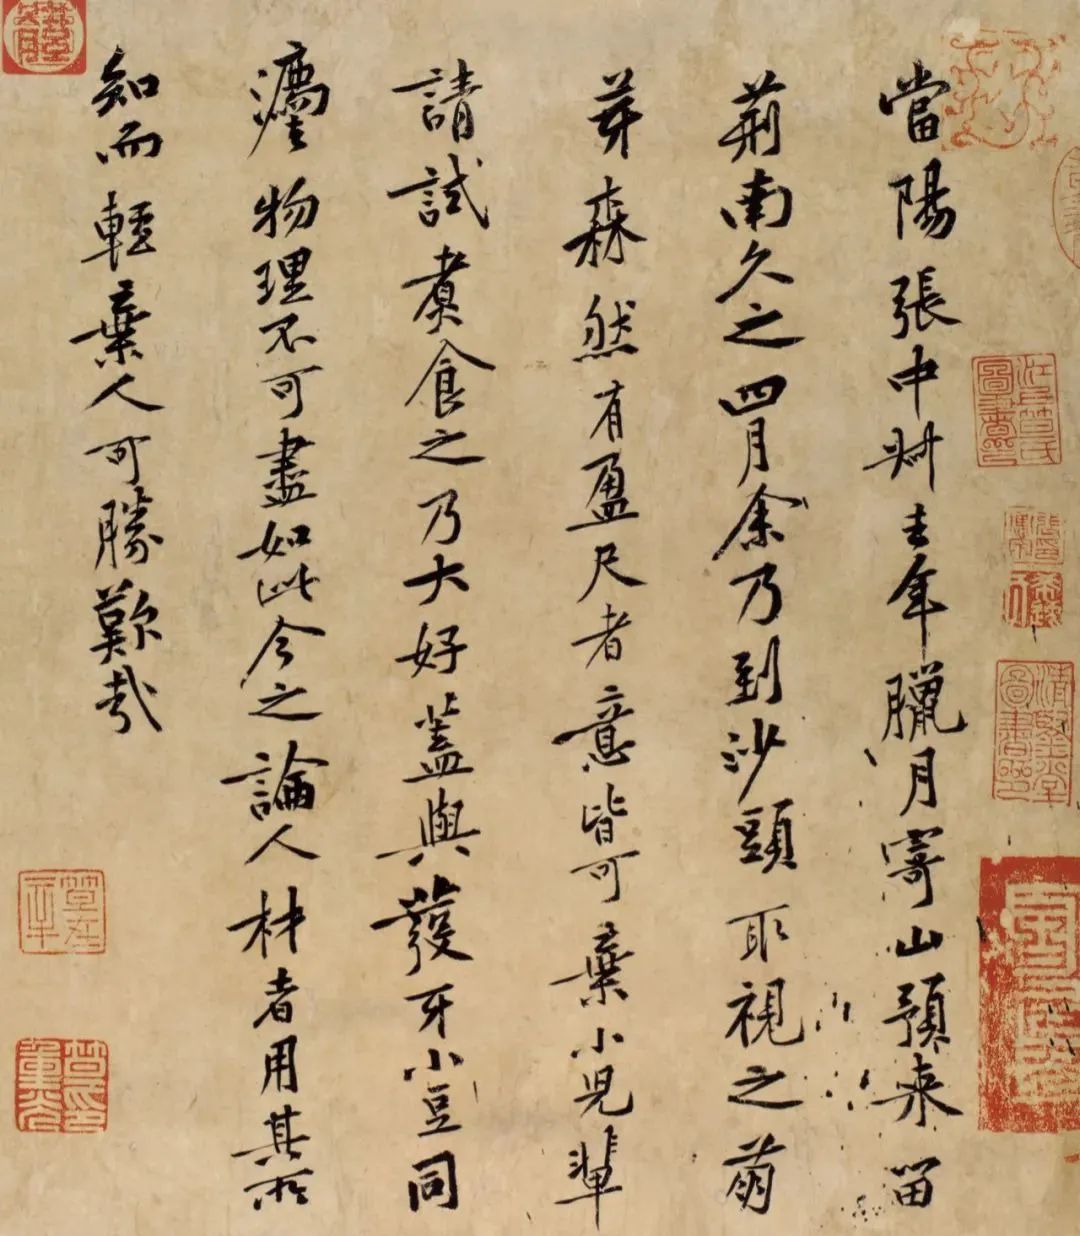 當陽張中叔去年臘月寄山預来留
荊南久之四月余乃到沙頭取視之萌
芽森然有盈尺者意皆可棄小兒輩
請試煮食之乃大好蓋與發牙小豆同
灋物理不可盡如此今之論人材者用其所
知而輕棄人可勝歎哉
江上笪氏圖書印